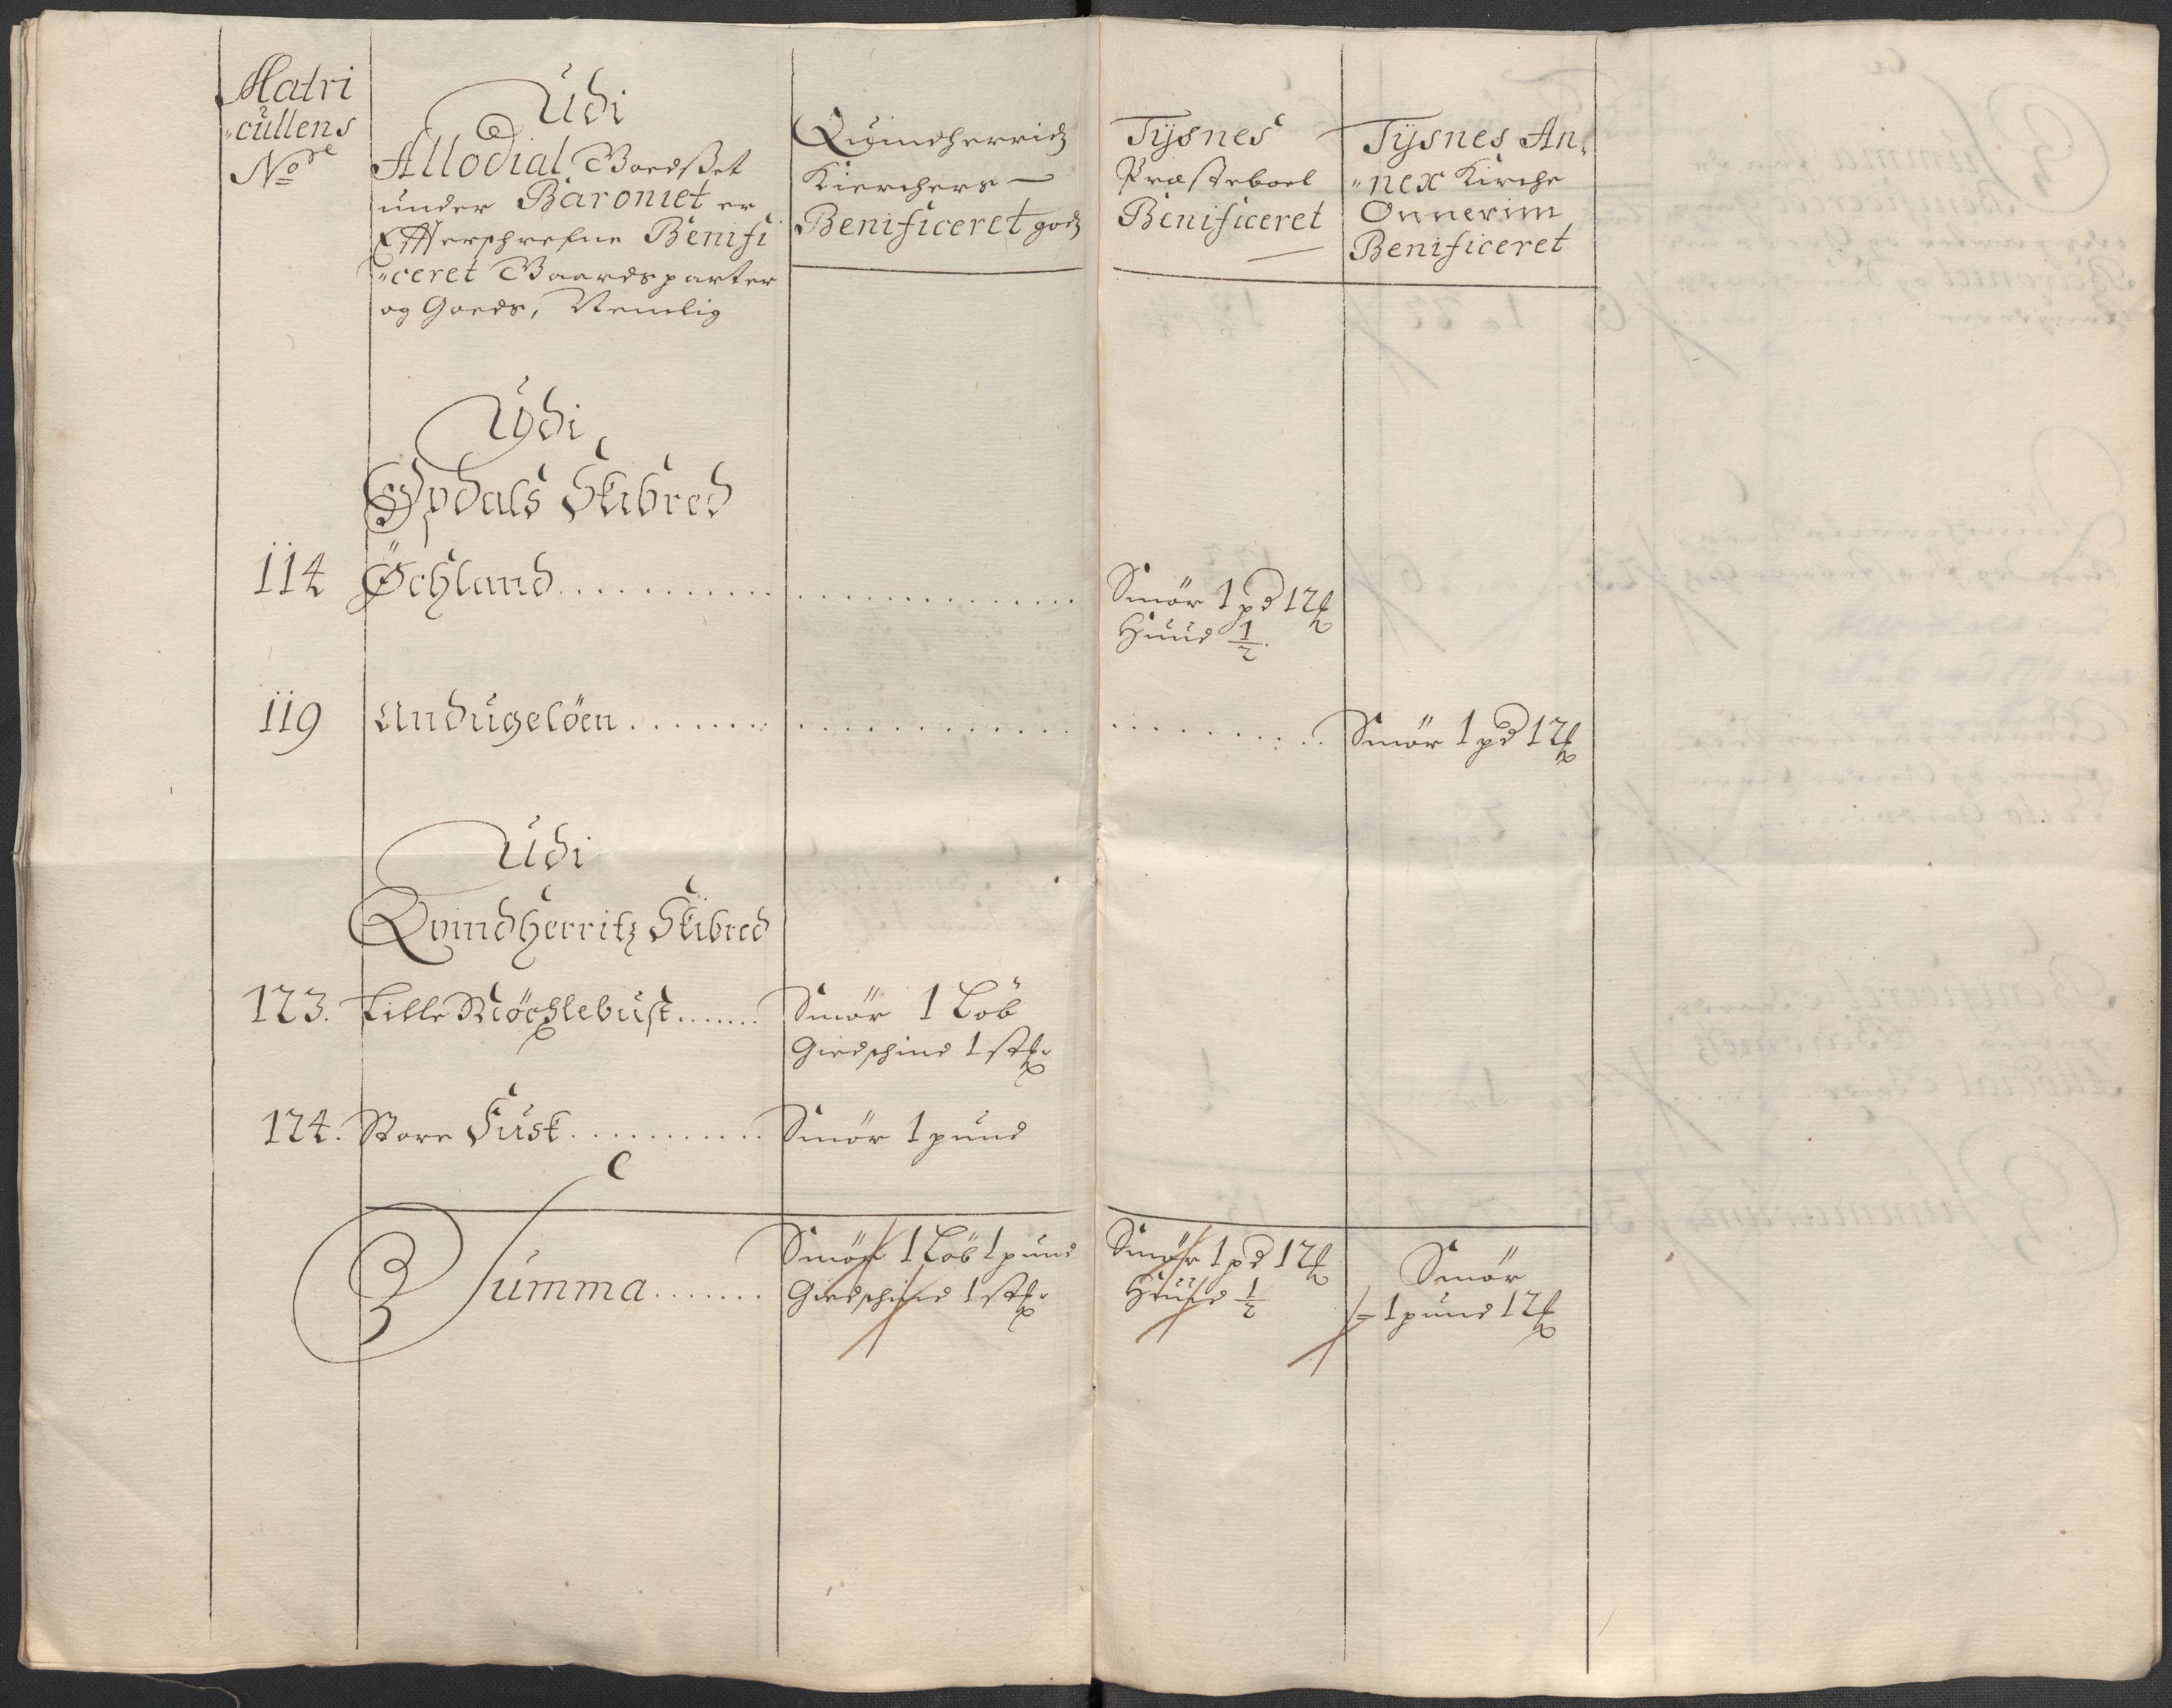 Matri
"cullens
No
Udi
Allodial Goedset
under Baroniet er
Effterschrefne Benifi
"ceret Gaardsparter
og Goeds, Nemlig
Quindherridz
Kierchers
Benificeret godz
Tÿsnes
Præsteboel
Benificeret
Tÿsnes An,
"nex Kirche
Onnerim
Benificeret
Udi
Opdals Skibred
114 Øchland
Smör 1 pd 12 ℔
Huud 1/2
119 Andugelöen
Smör 1 pd 12 ℔
Udi
Quindherritz Skibred
123. Lille Möchlebust
Smör 1 Löb
Giedschind 1 stk.
124. Store Fusk
Smör 1 pund
Summa
Smör 1 Löb 1 pund
Giedschind 1 stk.
Smör 1 pd 12 ℔
Huud 1/2
Smör
1 pund 12 ℔